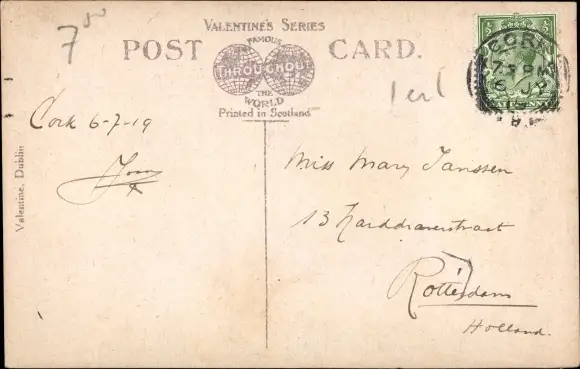 7 50
VALENTINE'S SERIES
POST CARD.
FAMOUS
THROUGHOUT
THE
WORLD
Printed in Scotland
CORK
Cork 6-7-19
Valentine, Dublin
Miss Mary Janssen
13 Harddraverstraat
Rotterdam
Holland.